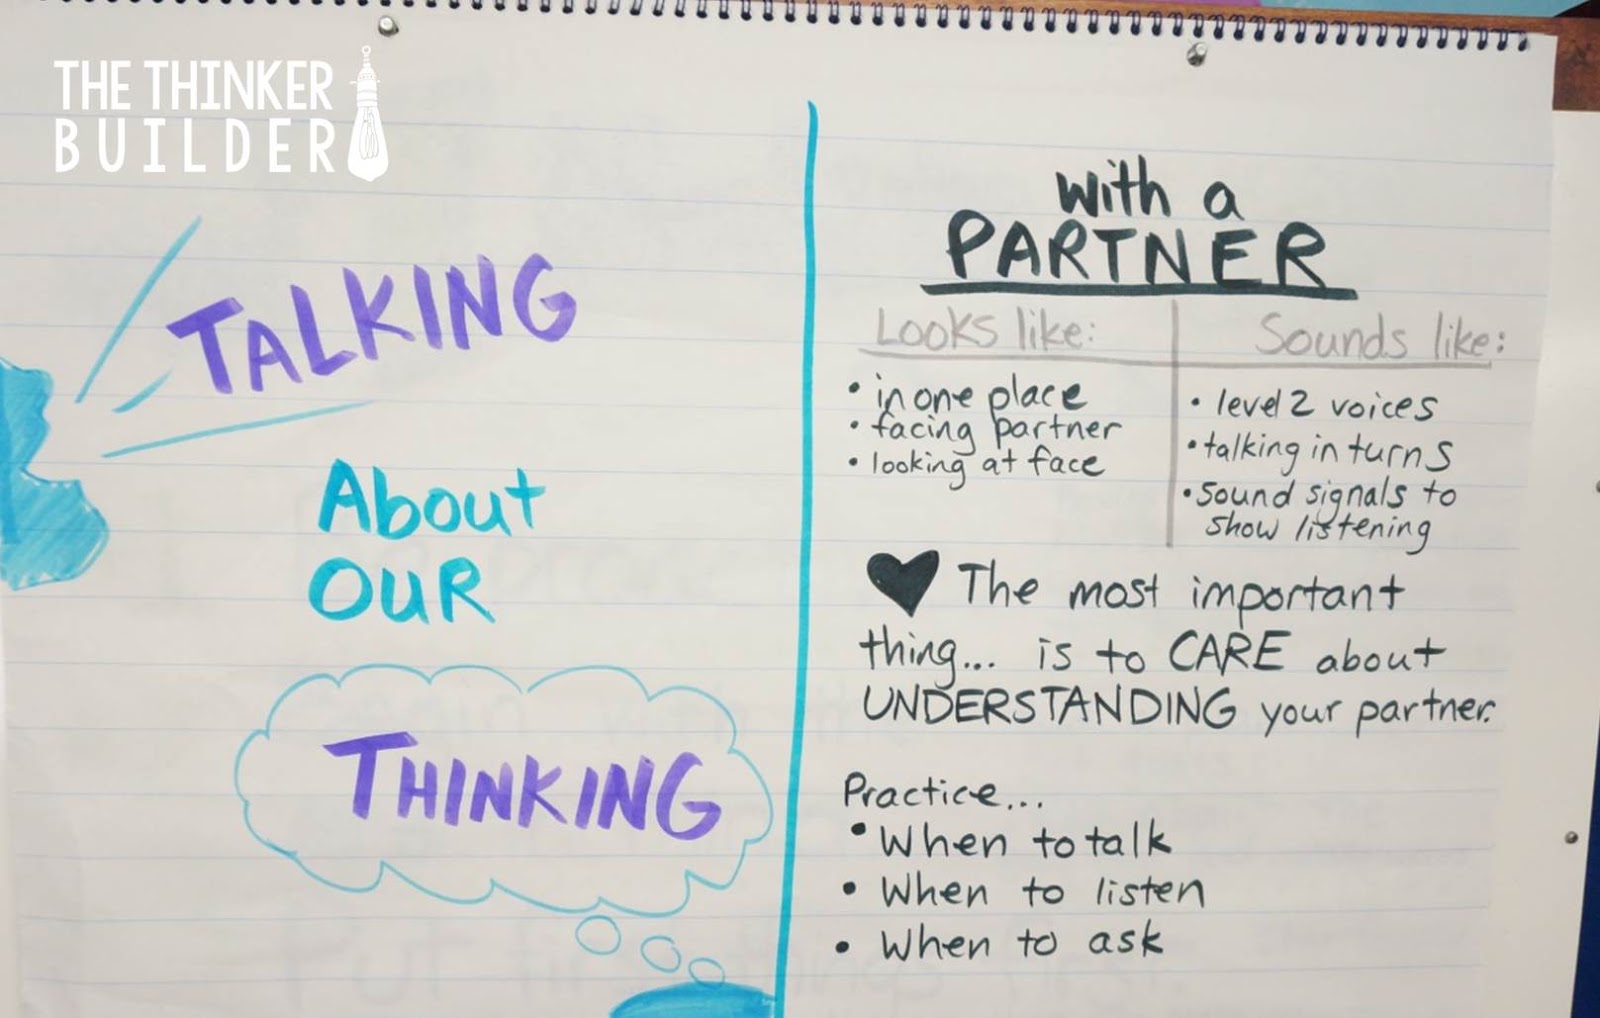 THE THINKER
BUILDER
TALKING
About
OUR
THINKING
with a
PARTNER
Looks like:
• in one place
• facing partner
• looking at face
Sounds like:
• level 2 voices
• talking in turns
• sound signals to
show listening
♥ The most important
thing... is to CARE about
UNDERSTANDING your partner.
Practice...
• When to talk
• When to listen
• When to ask